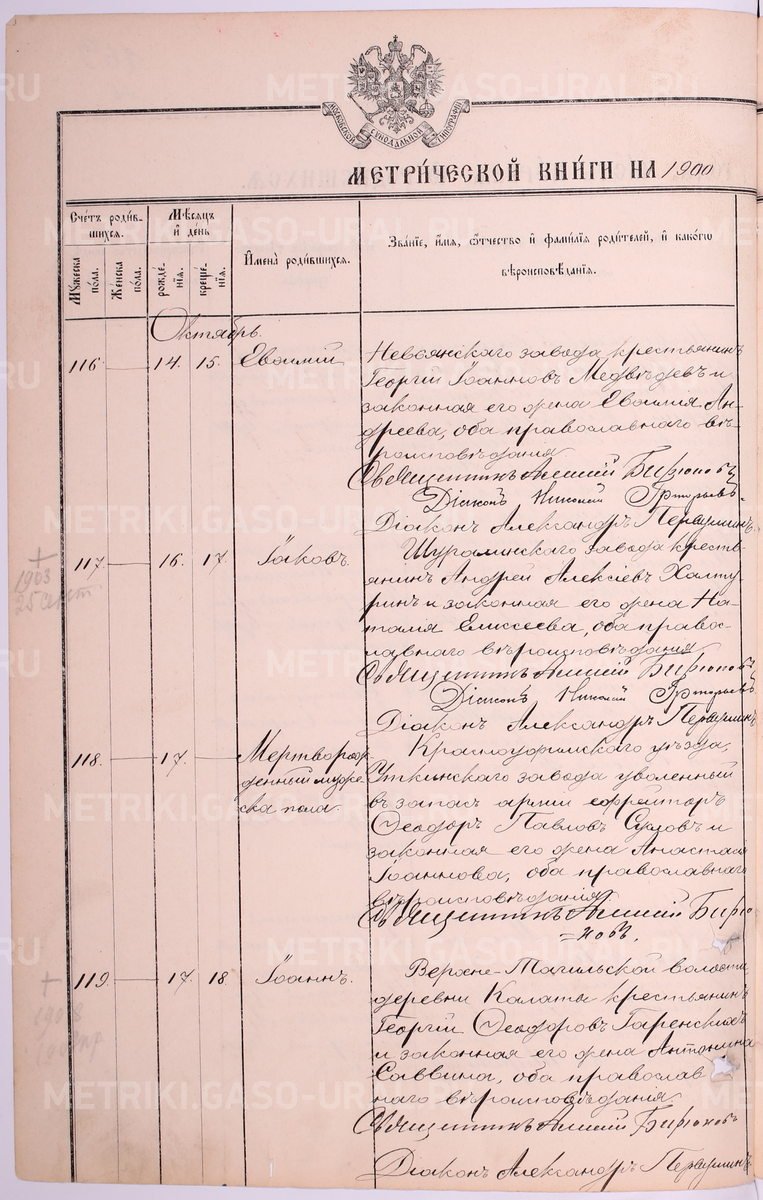 МОСКОВСКОЙ СѴНОДАЛЬНОЙ ТИПОГРАФІИ
МЕТРИ́ЧЕСКОЙ КНИ́ГИ НА 1900
Сче́тъ роди́в-
шихся.
Мѣ́сяцъ
и҆ де́нь
И҆мена̀ роди́вшихся.
Зва́нїе, и҆́мѧ, ѻ҆́тчество и҆ фами́лїѧ роди́телей, и҆ како́гѡ
вѣроисповѣ́данїѧ.
Му́жеска
по́ла.
Же́нска
по́ла.
рожде́-
нїѧ.
креще́-
нїѧ.
Октябрь.
116 14. 15. Евѳимій
Невьянскаго завода крестьянинъ
Георгій Іоанновъ Медвѣдевъ и
законная его жена Евѳимія Ан-
дреева, оба православнаго вѣ-
роисповѣданія
Священникъ Алексій Бирюковъ
Діаконъ Николай
Діаконъ Александръ Первушинъ.
117. 16. 17. Іаковъ.
Шуралинскаго завода кресть-
янинъ Андрей Алексіевъ Халту-
ринъ и законная его жена На-
талія Елисеева, оба правос-
лавнаго вѣроисповѣданія
Священникъ Алексій Бирюковъ
Діаконъ Николай
Діаконъ Александръ Первушинъ
+
1903
25 сент.
118. 17. Мертворож-
денный муже-
ска пола.
Красноуфимскаго уѣзда,
Уткинскаго завода уволенный
въ запасъ арміи ефрейторъ
Ѳеодоръ Павловъ Суловъ и
законная его жена Анастасія
Іоаннова, оба православнаго
вѣроисповѣданія
Священникъ Алексій Бирю
=ковъ.
119. 17. 18. Іоаннъ.
Верхне-Тагильской волости
деревни Калаты крестьянинъ
Георгій Ѳеодоровъ Гаренскихъ
и законная его жена Антонина
Саввина, оба православ
наго вѣроисповѣданія.
Священникъ Алексій Бирюковъ
Діаконъ Александръ Первушинъ
+
METRIKI.GASO-URAL.RU